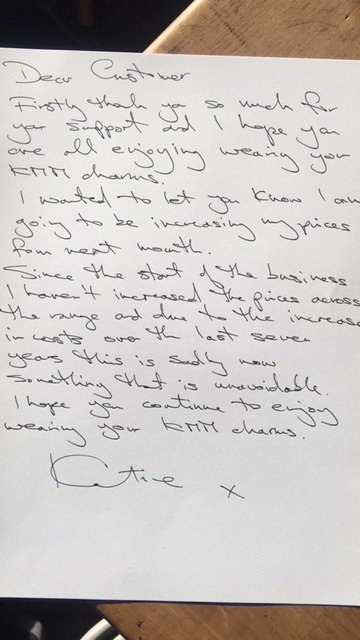 Dear Customer
Firstly thank you so much for
your support and I hope you
are all enjoying wearing your
KMM charms.
I wanted to let you know I am
going to be increasing my prices
from next month.
Since the start of the business
I haven't increased the prices across
the range and due to the increase
in costs over the last seven
years this is sadly now
something that is unavoidable.
I hope you continue to enjoy
wearing your KMM charms.
Katie x